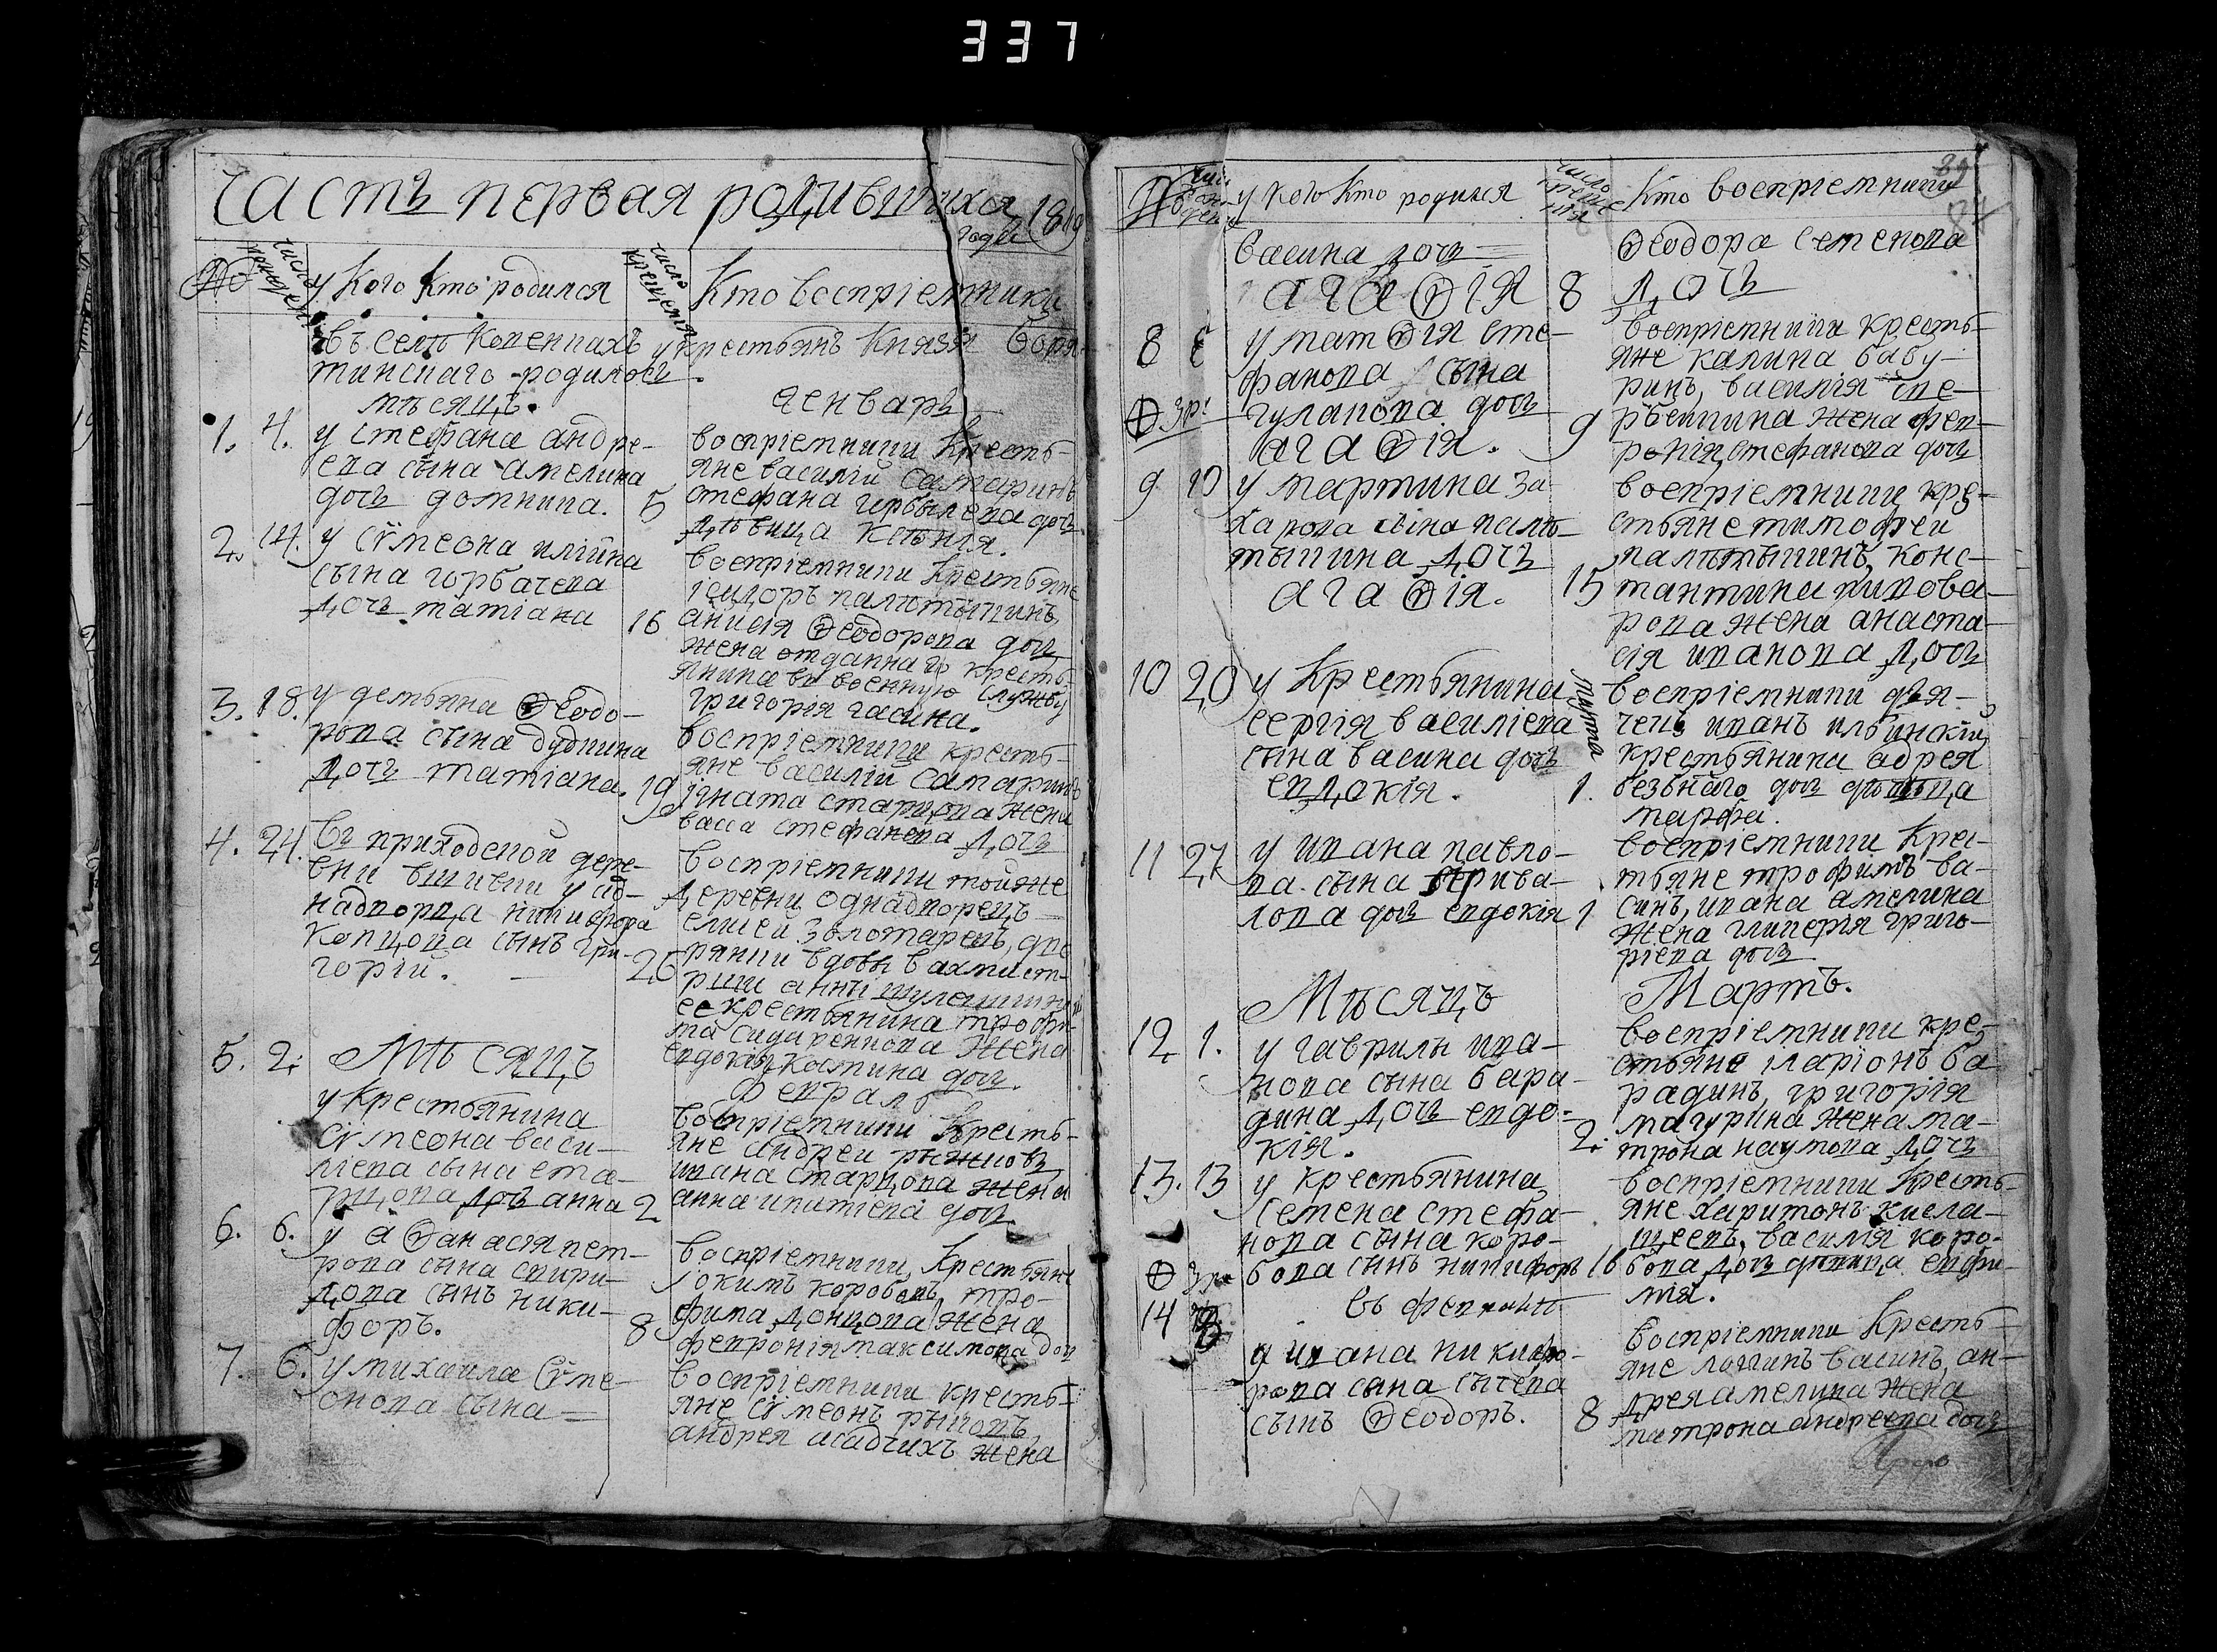 337
Часть первая родившихся
года
№
число рожден
у кого кто родился
число крещения
Кто воспріемники
Въ селѣ Копенкахъ у крестьянъ Князя Боря-
тинскаго родилось
мѣсяцъ. Генварь
1. 4. у стефана андре-
ева сына амелина
дочь домника. 5
воспріемники кресть-
яне василій самаринъ
стефана дочь
дѣвица ксѣнія.
2. 14. у сѷмеона иліина
сына горбачева
дочь татіана 16
воспріемники крестьяне
ісидоръ палютышинъ,
анисія Ѳеодорова дочь
жена отданнаго кресть-
янина въ военную службу
григорія гасина.
3. 18. у демьяна Ѳеодо-
рова сына дудкина
дочь татіана. 19
воспріемники кресть-
яне василій самаринъ
ігната старцова жена
васса стефанова дочь
4. 24. въ приходской дере-
вни вшивки у од-
надворца никифора
копцова сынъ гри-
горій. 26
воспріемники тойже
деревни однадворецъ
елисей золотаревъ, дво
рянки вдовы вахмист-
рши анны
ее крестьянина трофи-
ма жена
евдокія костина дочь.
5. 2. Мѣсяцъ Февраль
у крестьянина
Сѷмеона васи-
ліева сына ста-
рцова дочь анна 2
воспріемники кресть-
яне андрей рыжковъ
ивана старцова жена
анна ипатіева дочь
6. 6. у аѲанасія пет-
рова сына спири-
дова сынъ ники-
форъ. 8
воспріемники, крестьяне
іокимъ корововъ, тро-
фима донцова жена
февронія максимова доч
7. 6. у михаила Сѷме-
онова сына
воспріемники кресть-
яне сѷмеонъ рыковъ
андрея асадчихъ жена
№
у кого кто родился
число крещения
Кто воспріемники
васина дочь
агаѲія 8
Ѳеодора семенова
дочь
8 6 у матѲія сте-
фанова сына
гулакова дочь
агаѲія. 9
воспріемники кресть-
яне калина бабу-
ринъ, василія
жена фев-
ронія, стефанова дочь
9 10 у мартина за-
харова сына палю-
тышина дочь
агаѲія. 15
воспріемники кре-
стьяне тимофеи
палютышинъ, конс-
тантина
жена анаста-
сія иванова дочь
10 20 у крестьянина
сергія василіева
сына васина дочь
евдокія. 1.
марта
воспріемники дья-
чекъ иванъ ильинскій,
крестьянина адрея
дочь дѣвица
марфа.
11 27 у ивана павло-
ва сына
лова дочь евдокія 1
воспріемники крес-
тьяне трофимъ ва-
синъ, ивана амелина
жена гликерія григо-
ріева дочь
Мѣсяцъ Мартъ.
12 1. у гаврилы ива-
нова сына бара-
дина дочь евдо-
кія. 2.
воспріемники кре-
стьяне іларіонъ ба
радинъ, григорія
магурина жена ма-
трона наумова дочь
13. 13 у крестьянина
семена стефа-
нова сына коро-
бова сынъ никифоръ 16
воспріемники кресть-
яне харитонъ кисла-
щеевъ, василія коро-
бова дочь дѣвица евфи-
мія.
14
у ивана никифо-
рова сына сычева
сынъ Ѳеодоръ. 8
воспріемники кресть-
яне логгинъ васинъ, ан-
дрея амелина жена
матрона андреева дочь